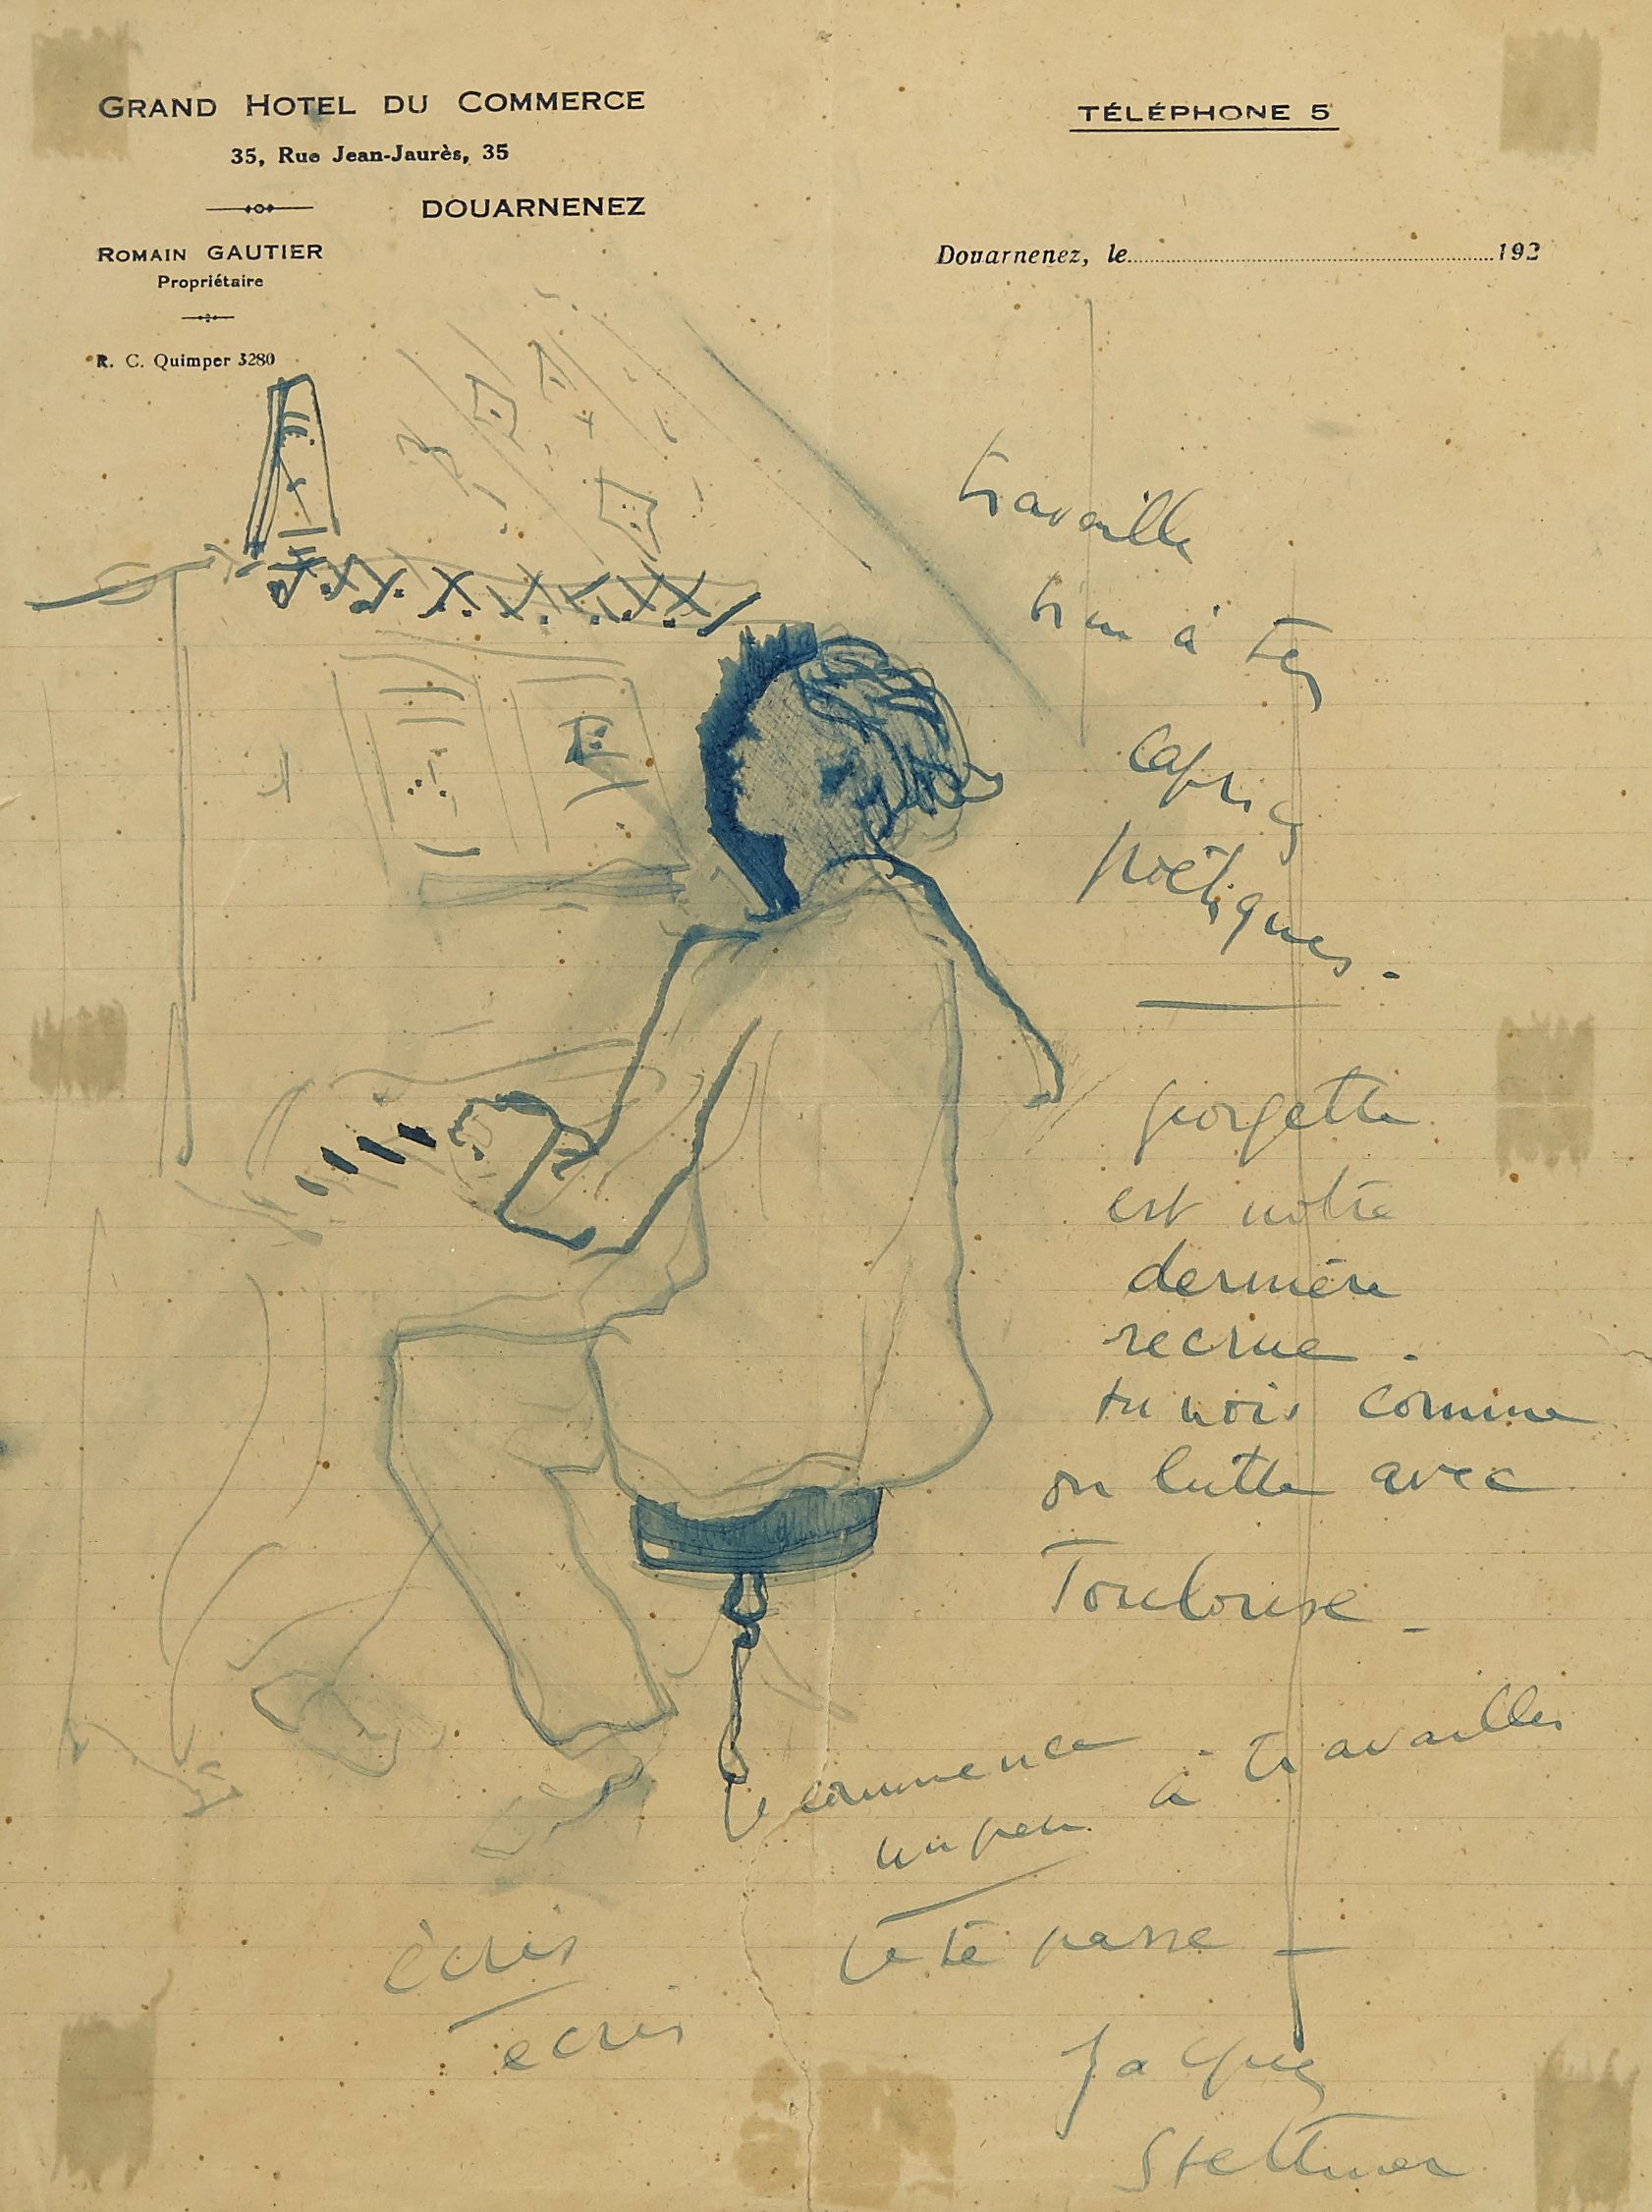 GRAND HOTEL DU COMMERCE
35, Rue Jean-Jaurès, 35
DOUARNENEZ
ROMAIN GAUTIER
Propriétaire
R. C. Quimper 3280
TÉLÉPHONE 5
Douarnenez, le 192
travaille
bien à tes
caprices
poëtiques.
georgette
est notre
dernière
recrue.
tu vois comme
on lutte avec
Toulouse -
commence à travailler
un peu
l'été passe -
écris
ecris
Jacques
Stettiner